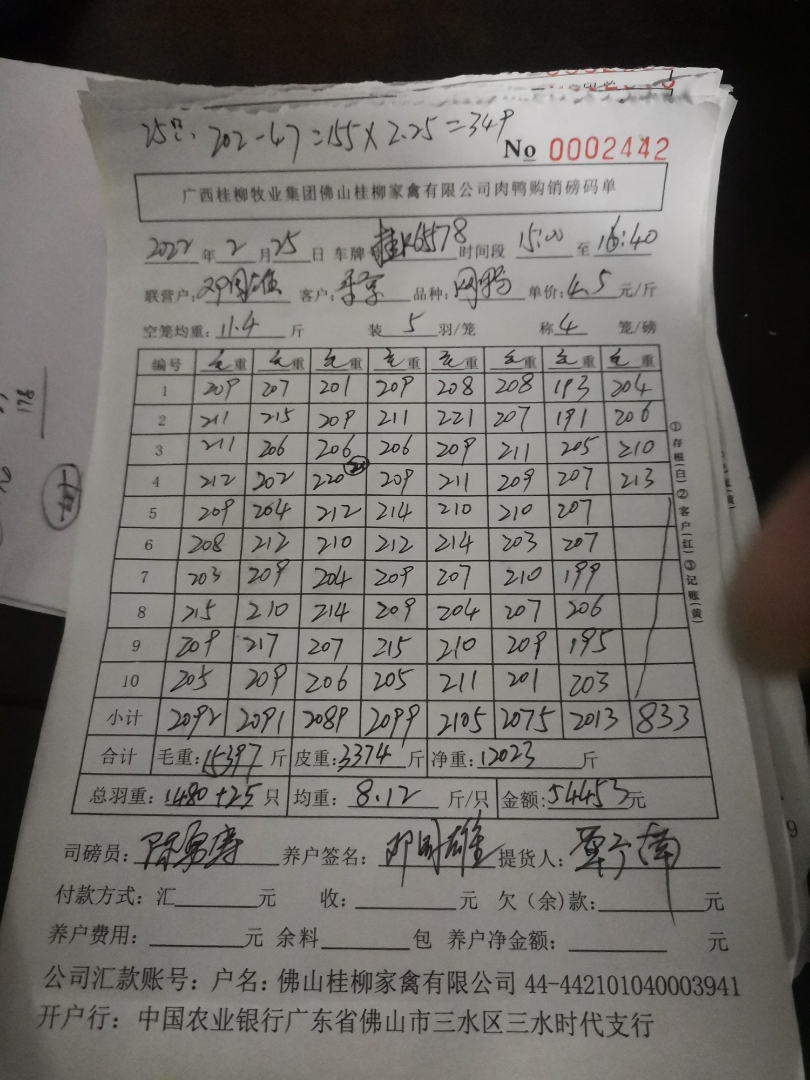 25只: 202-47=155×2.25=349
No 0002442
广西桂柳牧业集团佛山桂柳家禽有限公司肉鸭购销磅码单
2022年2月25日 车牌 桂K6578 时间段 15:00 至 16:40
联营户: 邓国雄 客户: 品种: 单价: 4.5 元/斤
空笼均重: 11.4 斤 装 5 羽/笼 称 4 笼/磅
编号 毛重 毛重 毛重 毛重 毛重 毛重 毛重 毛重
1 209 207 201 209 208 208 193 204
2 211 215 209 211 221 207 191 206
3 211 206 206 206 209 211 205 210
4 212 202 220 209 211 209 207 213
5 209 204 212 214 210 210 207
6 208 212 210 212 214 203 207
7 203 209 204 209 207 210 199
8 215 210 214 209 204 207 206
9 209 217 207 215 210 209 195
10 205 209 206 205 211 201 203
小计 2092 2091 2089 2099 2105 2075 2013 833
合计 毛重: 15397 斤 皮重: 3374 斤 净重: 12023 斤
总羽重: 1480+25 只 均重: 8.12 斤/只 金额: 54453元
司磅员: 养户签名: 邓国雄 提货人:
付款方式: 汇 元 收: 元 欠(余)款: 元
养户费用: 元 余料 包 养户净金额: 元
公司汇款账号: 户名: 佛山桂柳家禽有限公司 44-442101040003941
开户行: 中国农业银行广东省佛山市三水区三水时代支行
①存根(白)②客户(红)③记账(黄)
178